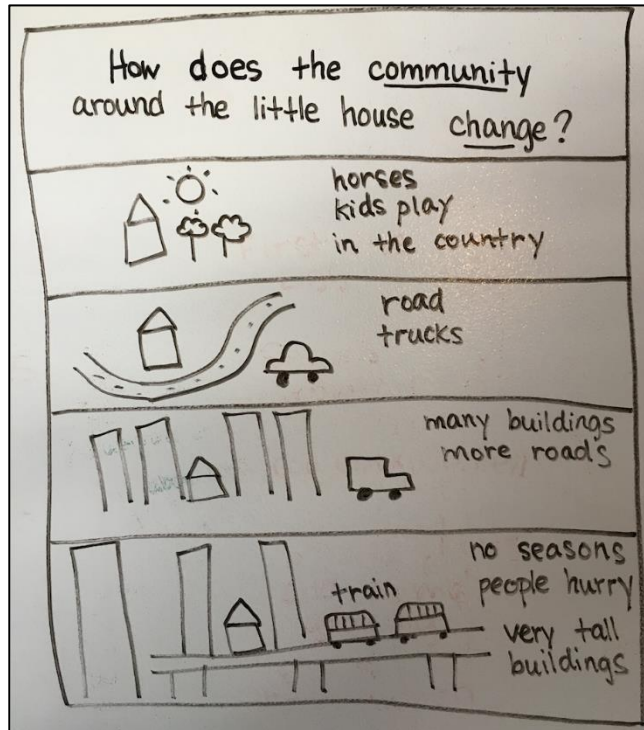 How does the community
around the little house change?
horses
kids play
in the country
road
trucks
many buildings
more roads
no seasons
people hurry
train
very tall
buildings